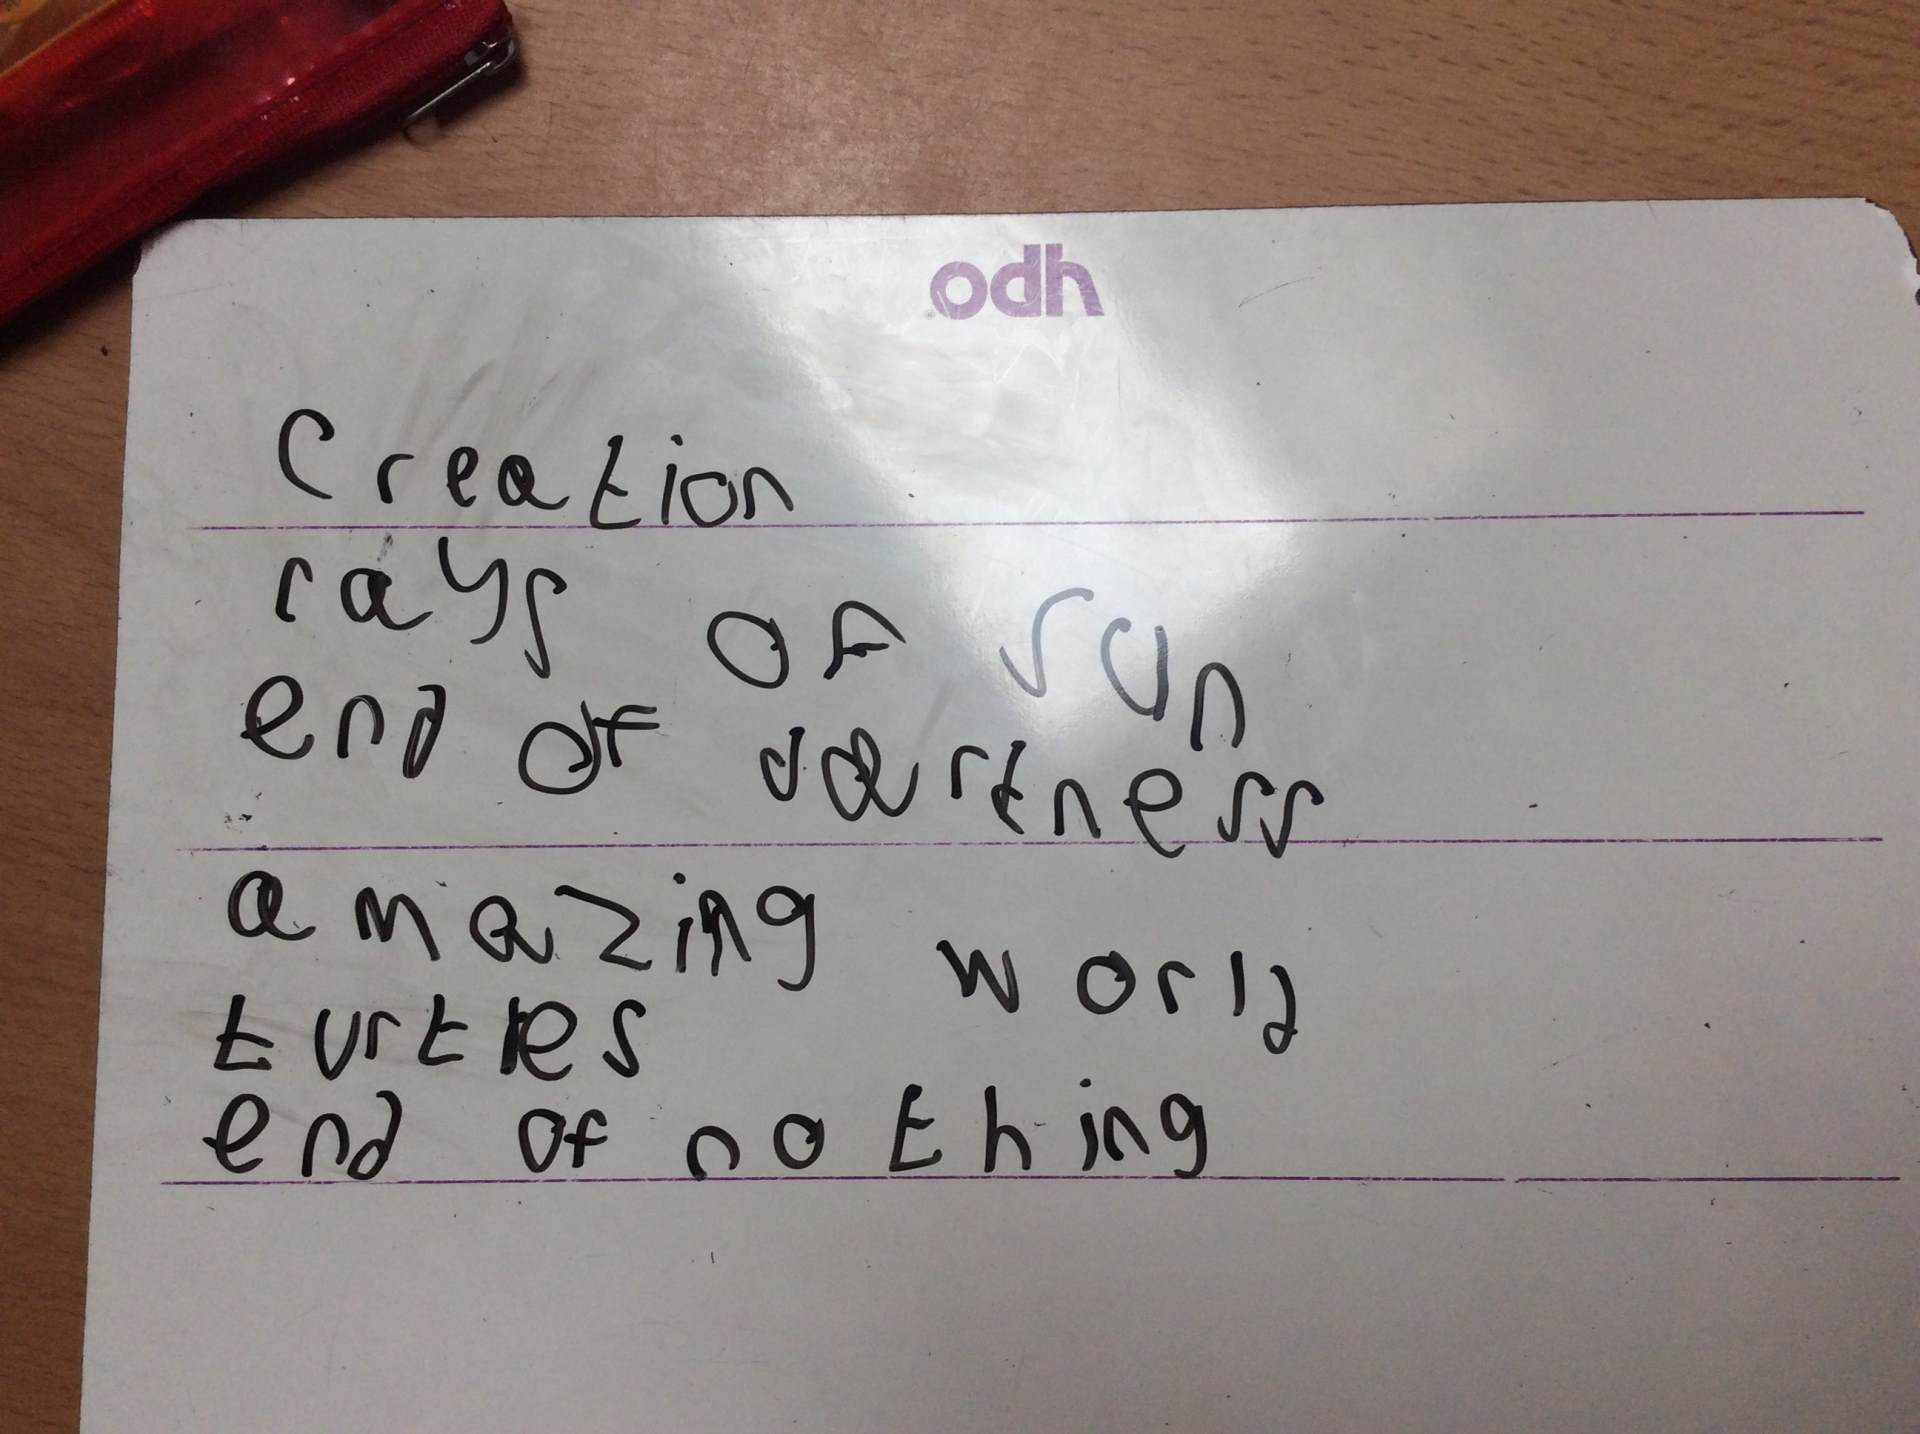 odh
Creation
rays of sun
end of darkness
amazing world
turtles
end of nothing